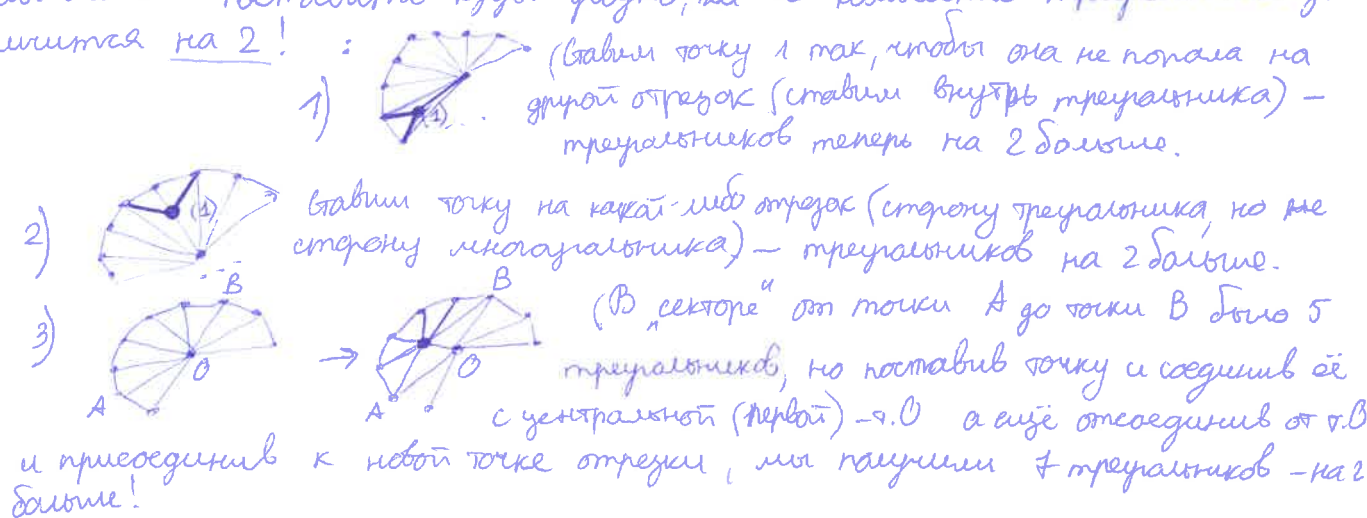 чится на 2! :
1) (Ставим точку 1 так, чтобы она не попала на
(1) другой отрезок (ставим внутрь треугольника) –
треугольников теперь на 2 больше.
2) (1) Ставим точку на какой-либо отрезок (сторону треугольника, но не
сторону многоугольника) – треугольников на 2 больше.
3) A B O → A B O (В „секторе“ от точки A до точки B было 5
треугольников, но поставив точку и соединив её
с центральной (первой) – т.О а ещё отсоединив от т.О
и присоединив к новой точке отрезки, мы получили 7 треугольников – на 2
больше!